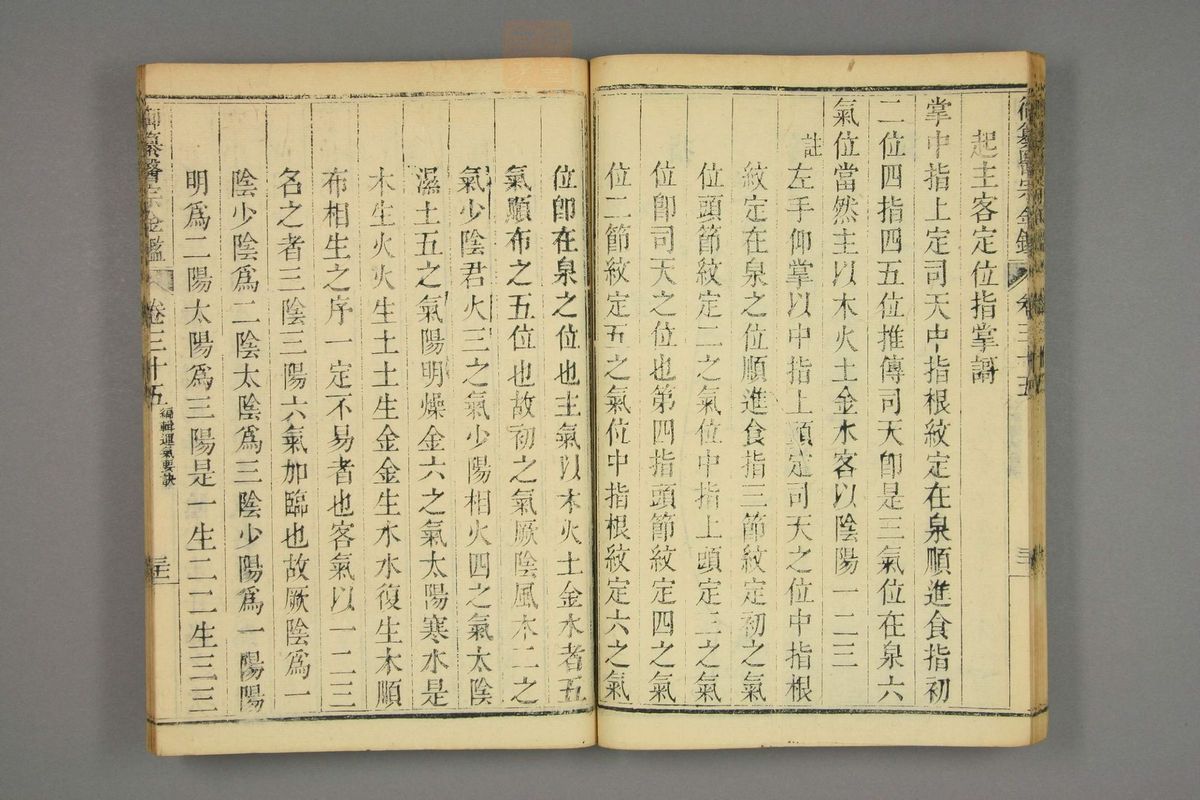 御纂醫宗金鑑 卷三十五
起主客定位指掌謌
掌中指上定司天中指根紋定在泉順進食指初
二位四指四五位推傳司天卽是三氣位在泉六
氣位當然主以木火土金水客以陰陽一二三
註
左手仰掌以中指上頭定司天之位中指根
紋定在泉之位順進食指三節紋定初之氣
位頭節紋定二之氣位中指上頭定三之氣
位卽司天之位也第四指頭節紋定四之氣
位二節紋定五之氣位中指根紋定六之氣
位卽在泉之位也主氣以木火土金水者五
氣順布之五位也故初之氣厥陰風木二之
氣少陰君火三之氣少陽相火四之氣太陰
濕土五之氣陽明燥金六之氣太陽寒水是
木生火火生土土生金金生水水復生木順
布相生之序一定不易者也客氣以一二三
名之者三陰三陽六氣加臨也故厥陰爲一
陰少陰爲二陰太陰爲三陰少陽爲一陽陽
明爲二陽太陽爲三陽是一生二二生三三
御纂醫宗金鑑 卷三十五 編輯運氣要訣